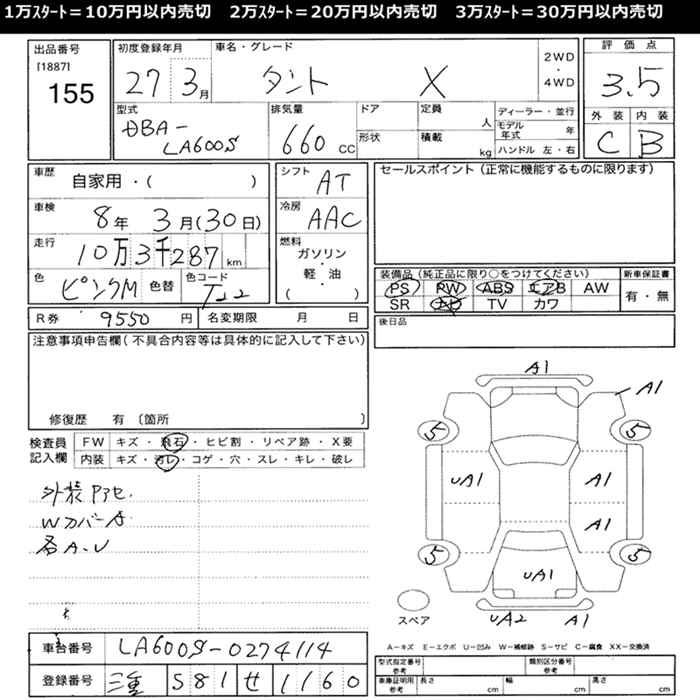 1万スタート＝10万円以内売切　2万スタート＝20万円以内売切　3万スタート＝30万円以内売切
出品番号
[1887]
155
初度登録年月
27 3月
車名・グレード
タント X
2WD
・
4WD
評価点
3.5
型式
DBA-
LA600S
排気量
660 cc
ドア
形状
定員 人
積載 kg
ディーラー・並行
モデル年式 年
ハンドル 左・右
外装 内装
C B
車歴
自家用・( )
シフト
AT
車検
8年 3月(30日)
冷房
AAC
走行
10万3千287km
燃料
ガソリン
・
軽・油
( )
色
ピンクM
色替
色コード
R券 9550円
名変期限 月 日
セールスポイント(正常に機能するものに限ります)
装備品(純正品に限り○をつけてください)
PS PW ABS エアB AW
SR ナビ TV カワ
新車保証書
有・無
後日品
注意事項申告欄(不具合内容等は具体的に記入して下さい)
修復歴 有〔箇所 〕
検査員
記入欄
FW キズ・飛石・ヒビ割・リペア跡・X要
内装 キズ・汚レ・コゲ・穴・スレ・キレ・破レ
外装アアセ
Wカバーキ
各A.U
A1
A1
5
5
UA1
A1
A1
5
5
UA1
UA2
A1
スペア
A－キズ E－エクボ U－凹み W－補修跡 S－サビ C－腐食 XX－交換済
車台番号 LA600S-0274114
登録番号 三重 581 せ 1160
型式指定番号
参考
類別区分番号
参考
車庫証明用
参考
長さ cm
幅 cm
高さ cm